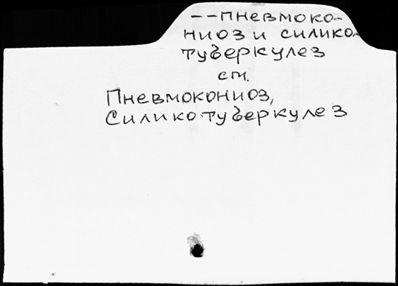 --пневмоко-
ниоз и силико-
туберкулез
см.
Пневмокониоз,
Силикотуберкулез